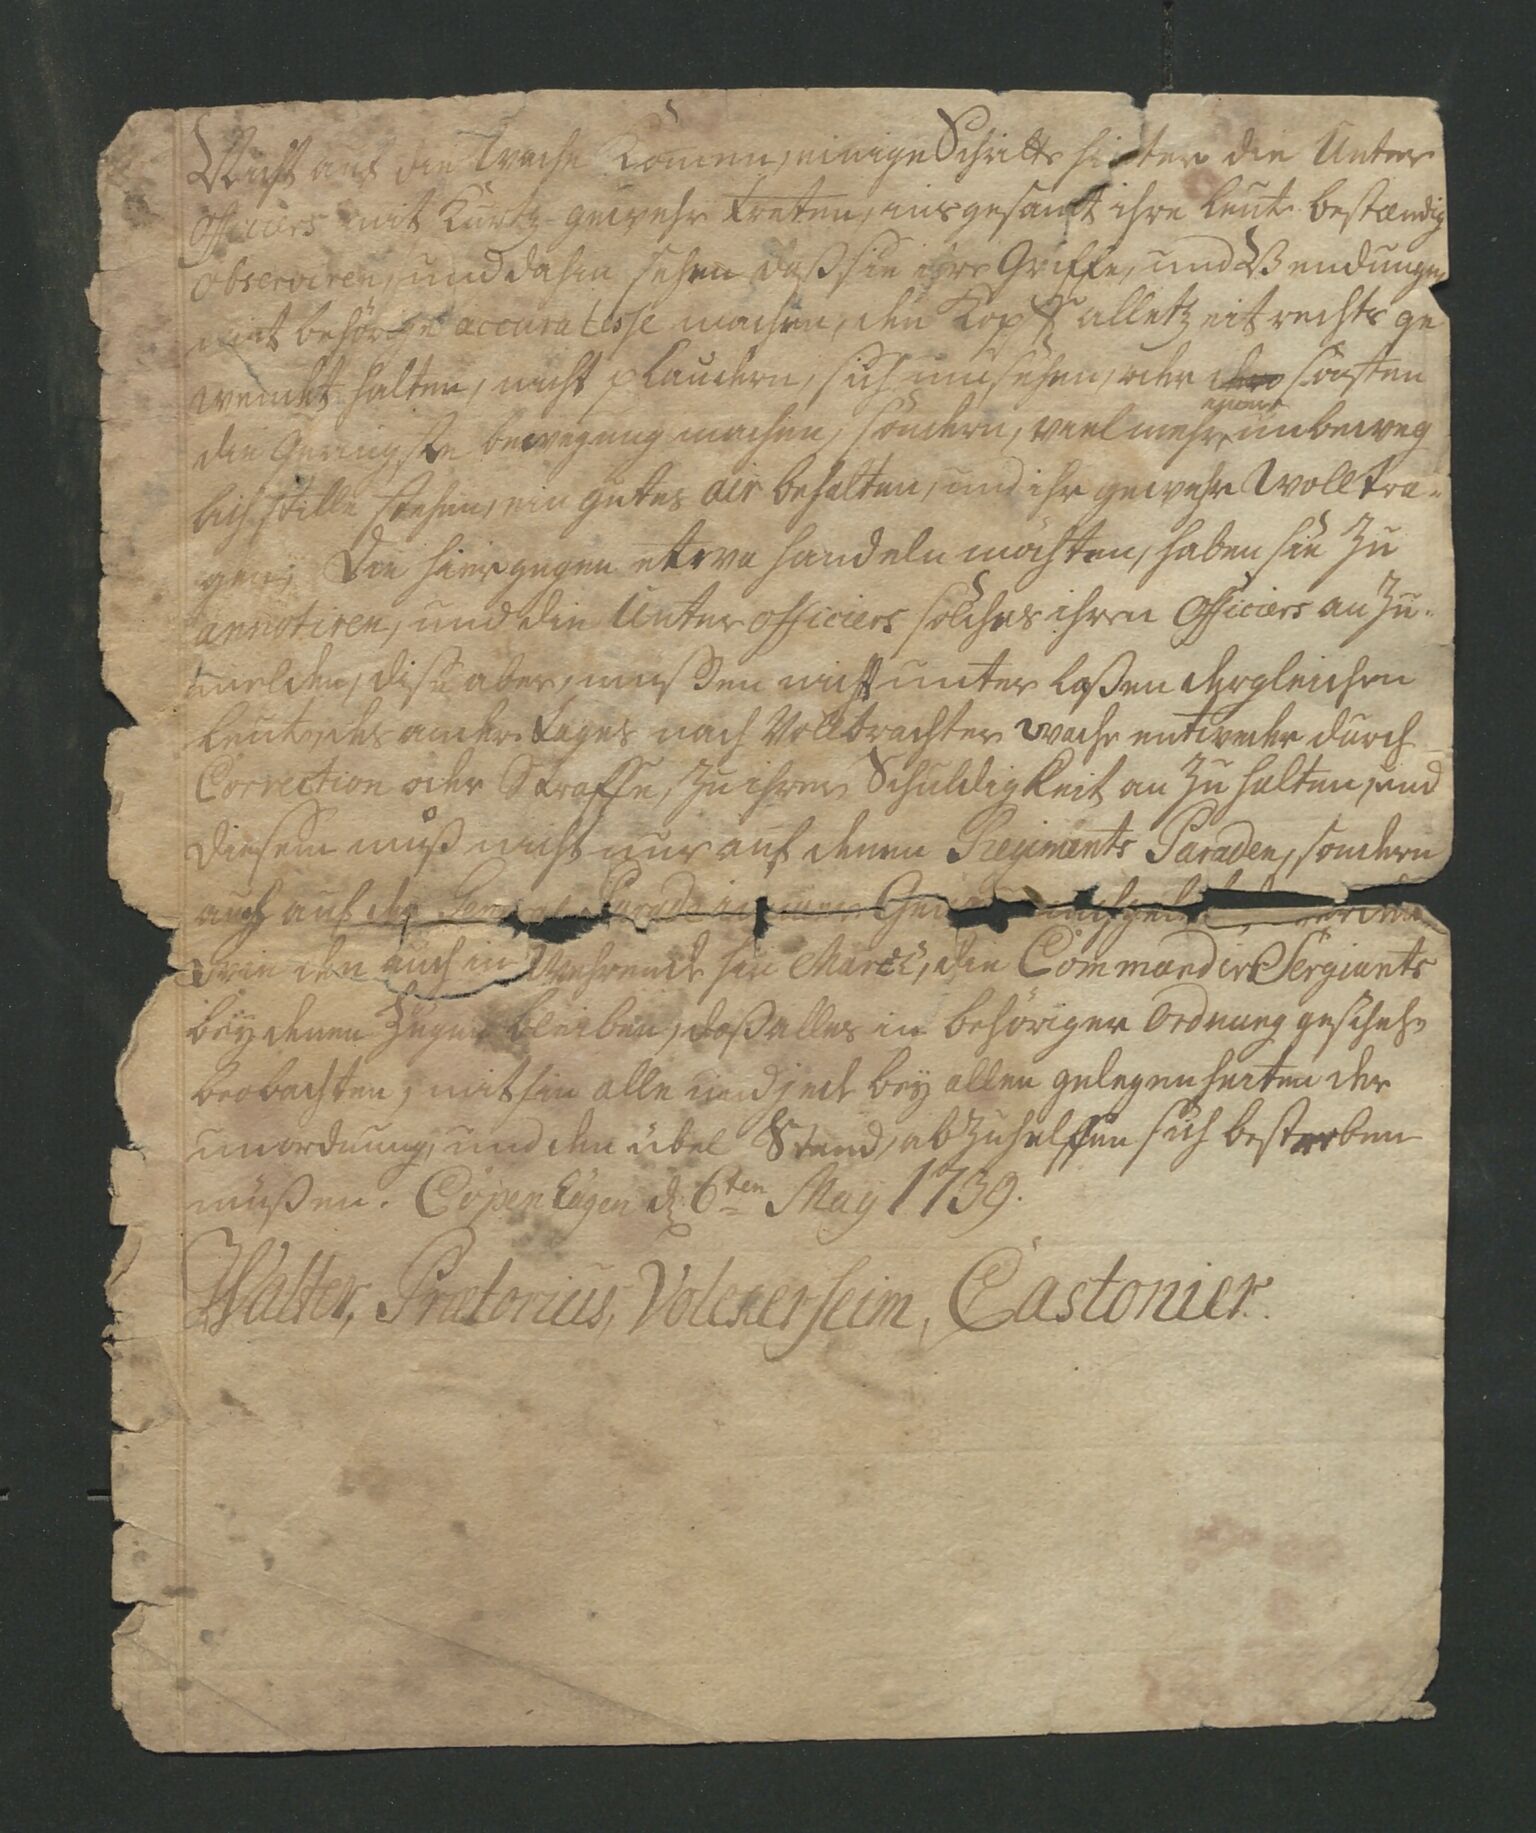 Nicht auf die Wache Kömen, einige Schritte hinter die Unter
Officiers mit Kurtz gewehr treten, ins gesamt ihre leute bestændig
observiren, und dahin sehen daß sie ihre Griffe, und Wendungen
mit behörige accuratesse machen, den Kopff alletzeit rechts ge
wendet halten, nicht plaudern, sich umsehen, oder sonsten
die Geringste bewegung machen, sondern, vielmehr unbeweg
lich stille stehen, ein gutes air behalten, und ihr gewehr Woll tra-
gen; Die hiergegen etwa handeln möchten, haben sie Zu
annotiren, und die Unter officiers solches ihren Officiers an Zu-
melden, diese aber, müßen nicht unter laßen dergleichen
leute, des andern tages nach Vollbrachter wache entweder durch
Correction oder Straffe, Zu ihrer Schuldigkeit an Zu halten, und
diesem muß nicht nur auf denen Regiments Paraden, sondern
auch auf der General Parade werden
wie den auch in Wehrende hin March, die Commandir Sergiants
bey denen Zugen bleiben, daß alles in behöriger Ordnung geschehe
beobachten, mithin alle und jede bey allen gelegenheiten der
unordnung, und den übel Stand, ab Zu helffen sich bestreben
müßen. Copenhagen d. 6ten May 1739.
Walter, Prætorius, Volckersheim, Castonier.